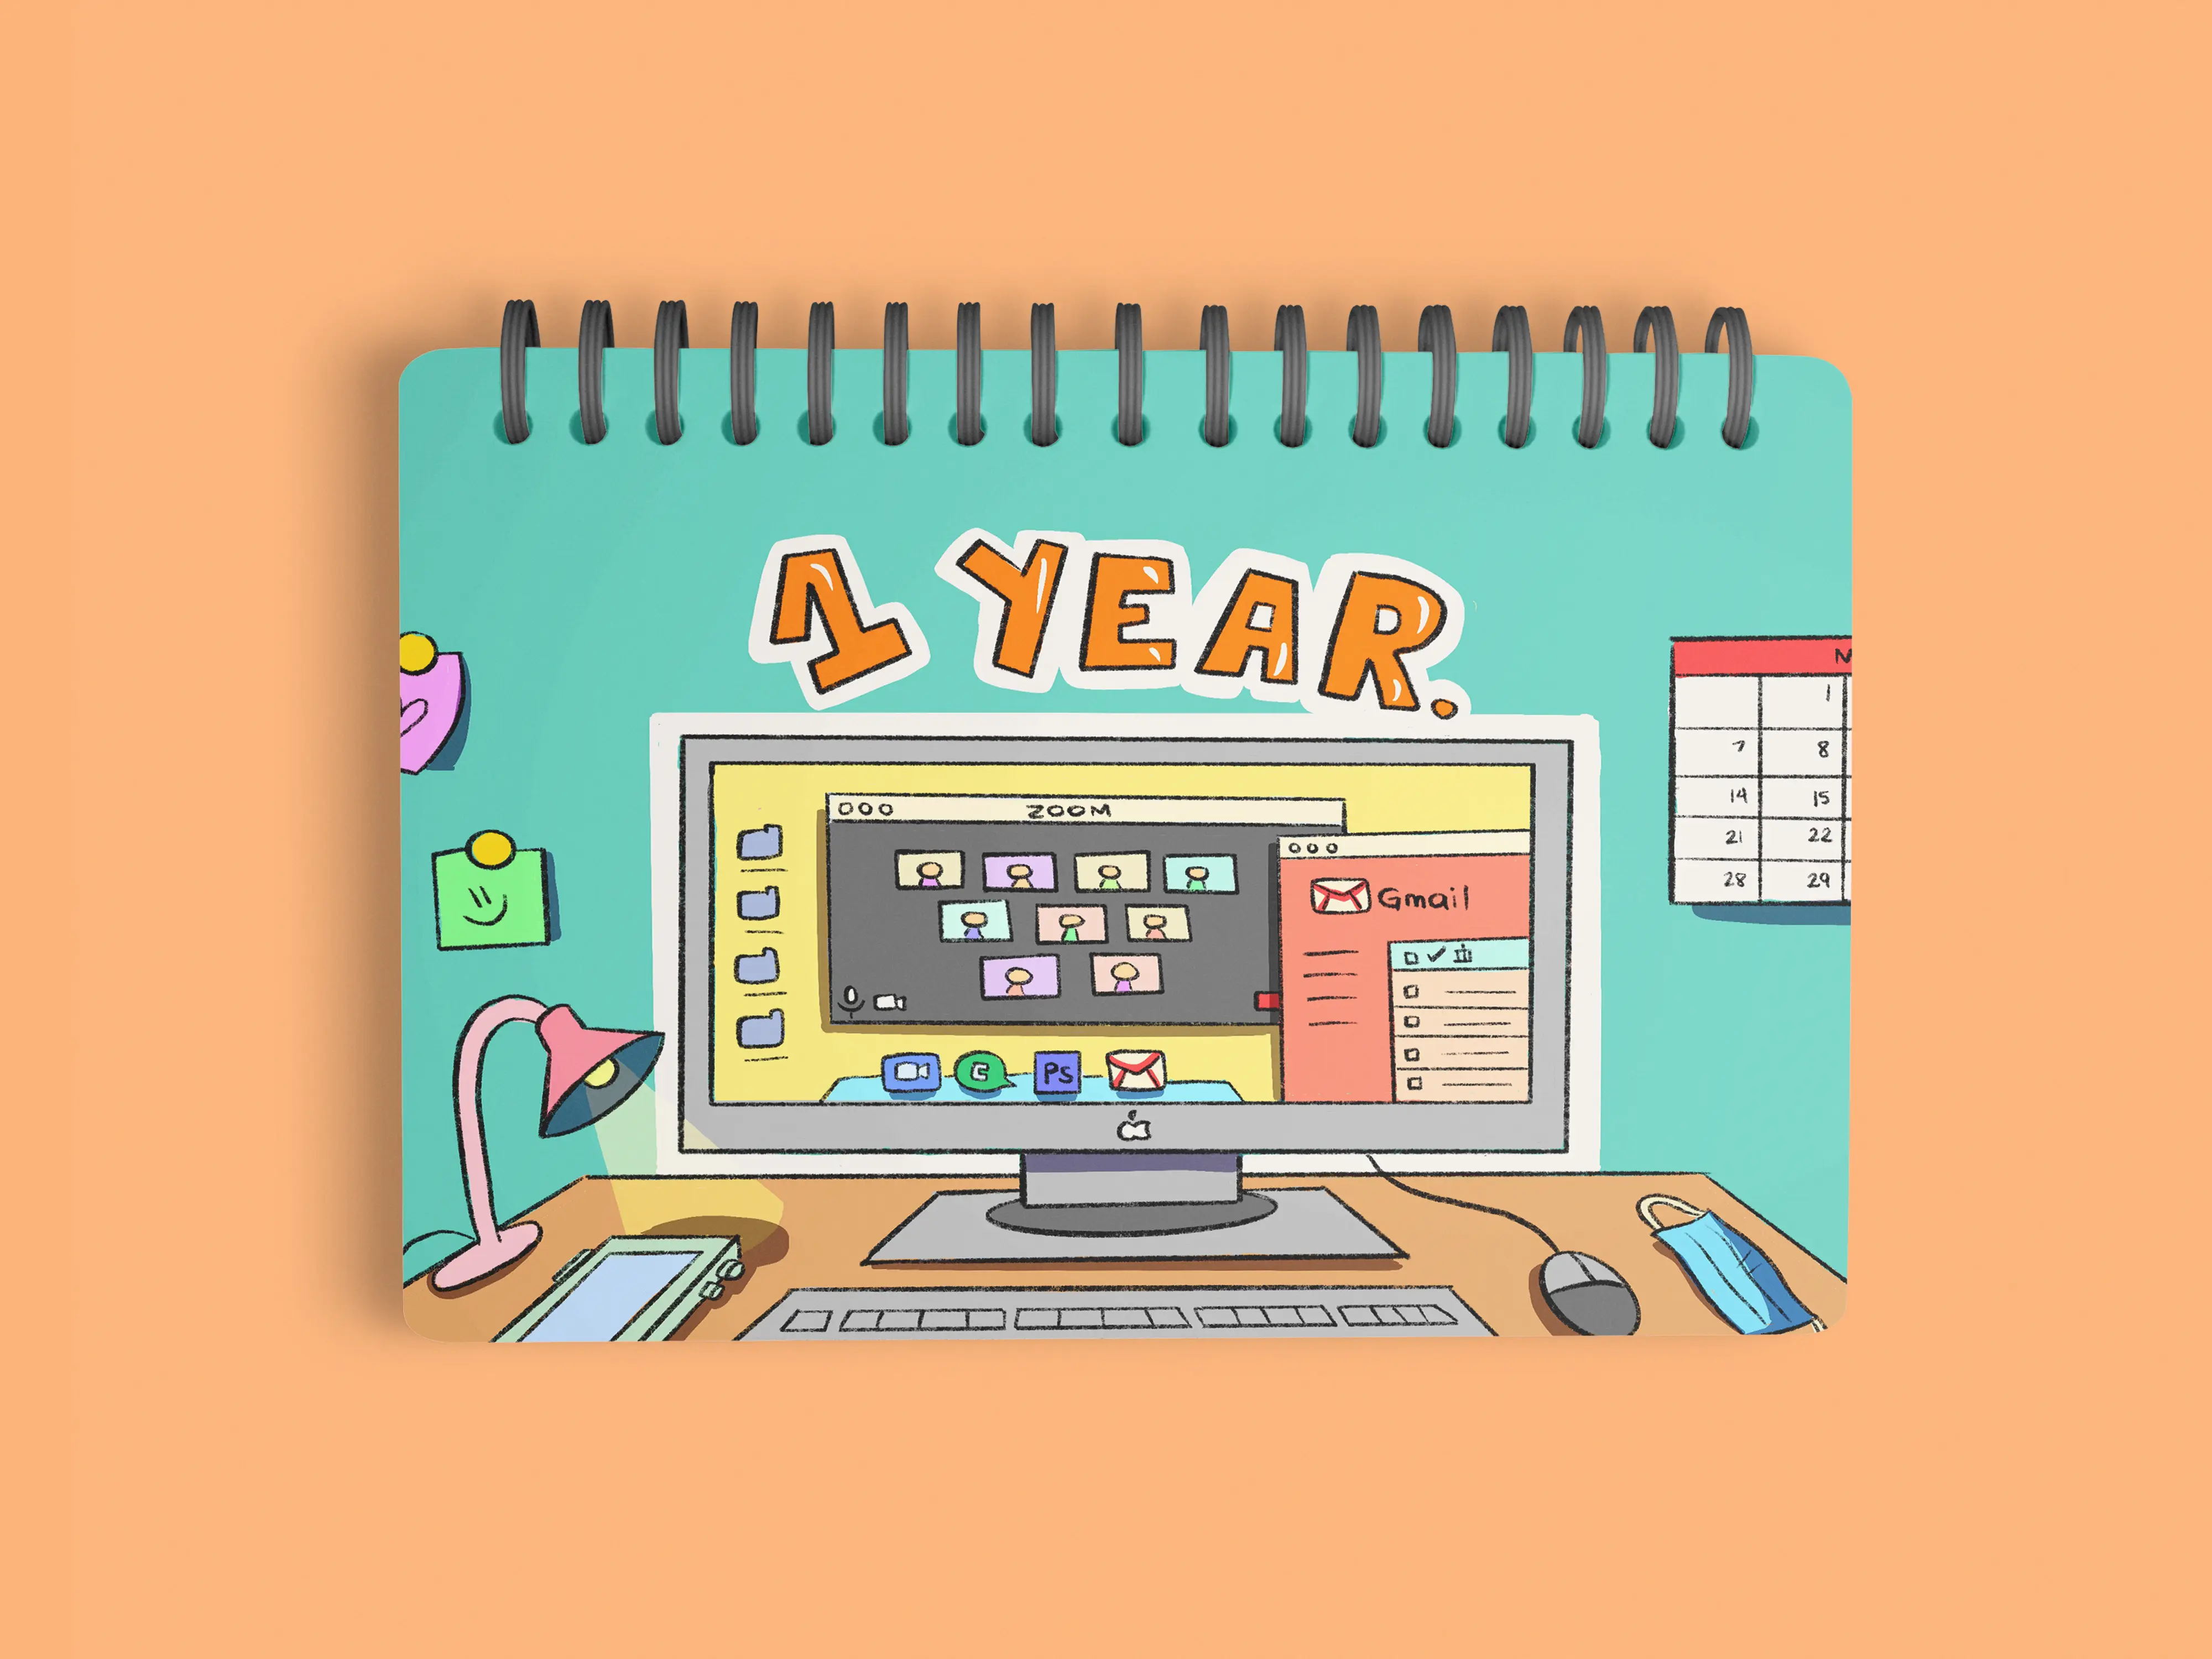 1 YEAR.
ZOOM
Gmail
Ps
1
7 8
14 15
21 22
28 29